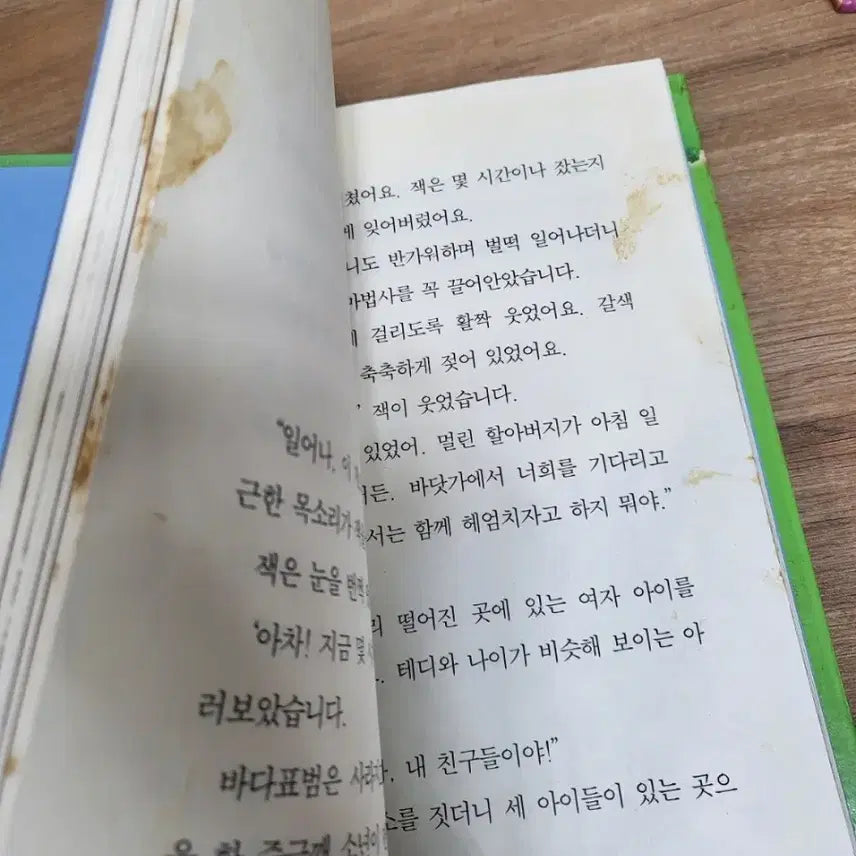 "일어나, 이
근한 목소리가
잭은 눈을 번쩍
'아차! 지금 몇
러보았습니다.
바다표범은 사라
쳤어요. 잭은 몇 시간이나 잤는지
잊어버렸어요.
니도 반가워하며 벌떡 일어나더니
마법사를 꼭 끌어안았습니다.
걸리도록 활짝 웃었어요. 갈색
축축하게 젖어 있었어요.
잭이 웃었습니다.
있었어. 멀린 할아버지가 아침 일
거든. 바닷가에서 너희를 기다리고
서는 함께 헤엄치자고 하지 뭐야."
떨어진 곳에 있는 여자 아이를
테디와 나이가 비슷해 보이는 아
내 친구들이야!"
소를 짓더니 세 아이들이 있는 곳으